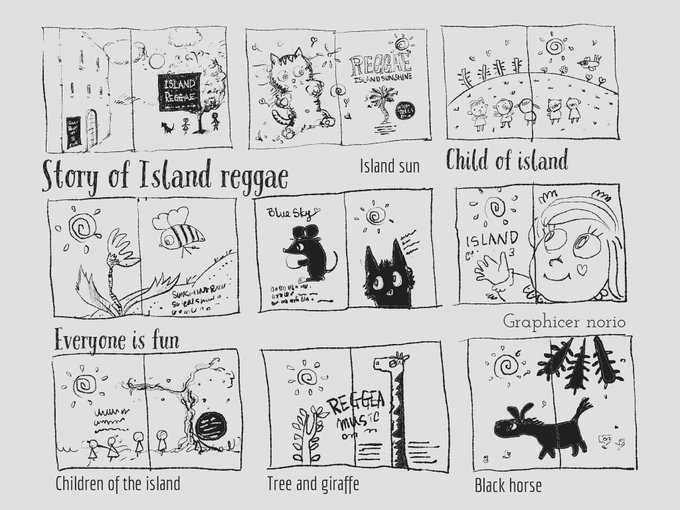 ISLAND
REGGAE
REGGAE
ISLAND SUNSHINE
Story of Island reggae
Island sun
Child of island
Blue Sky
ISLAND
Graphicer norio
Everyone is fun
REGGEA
MUSIC
Children of the island
Tree and giraffe
Black horse